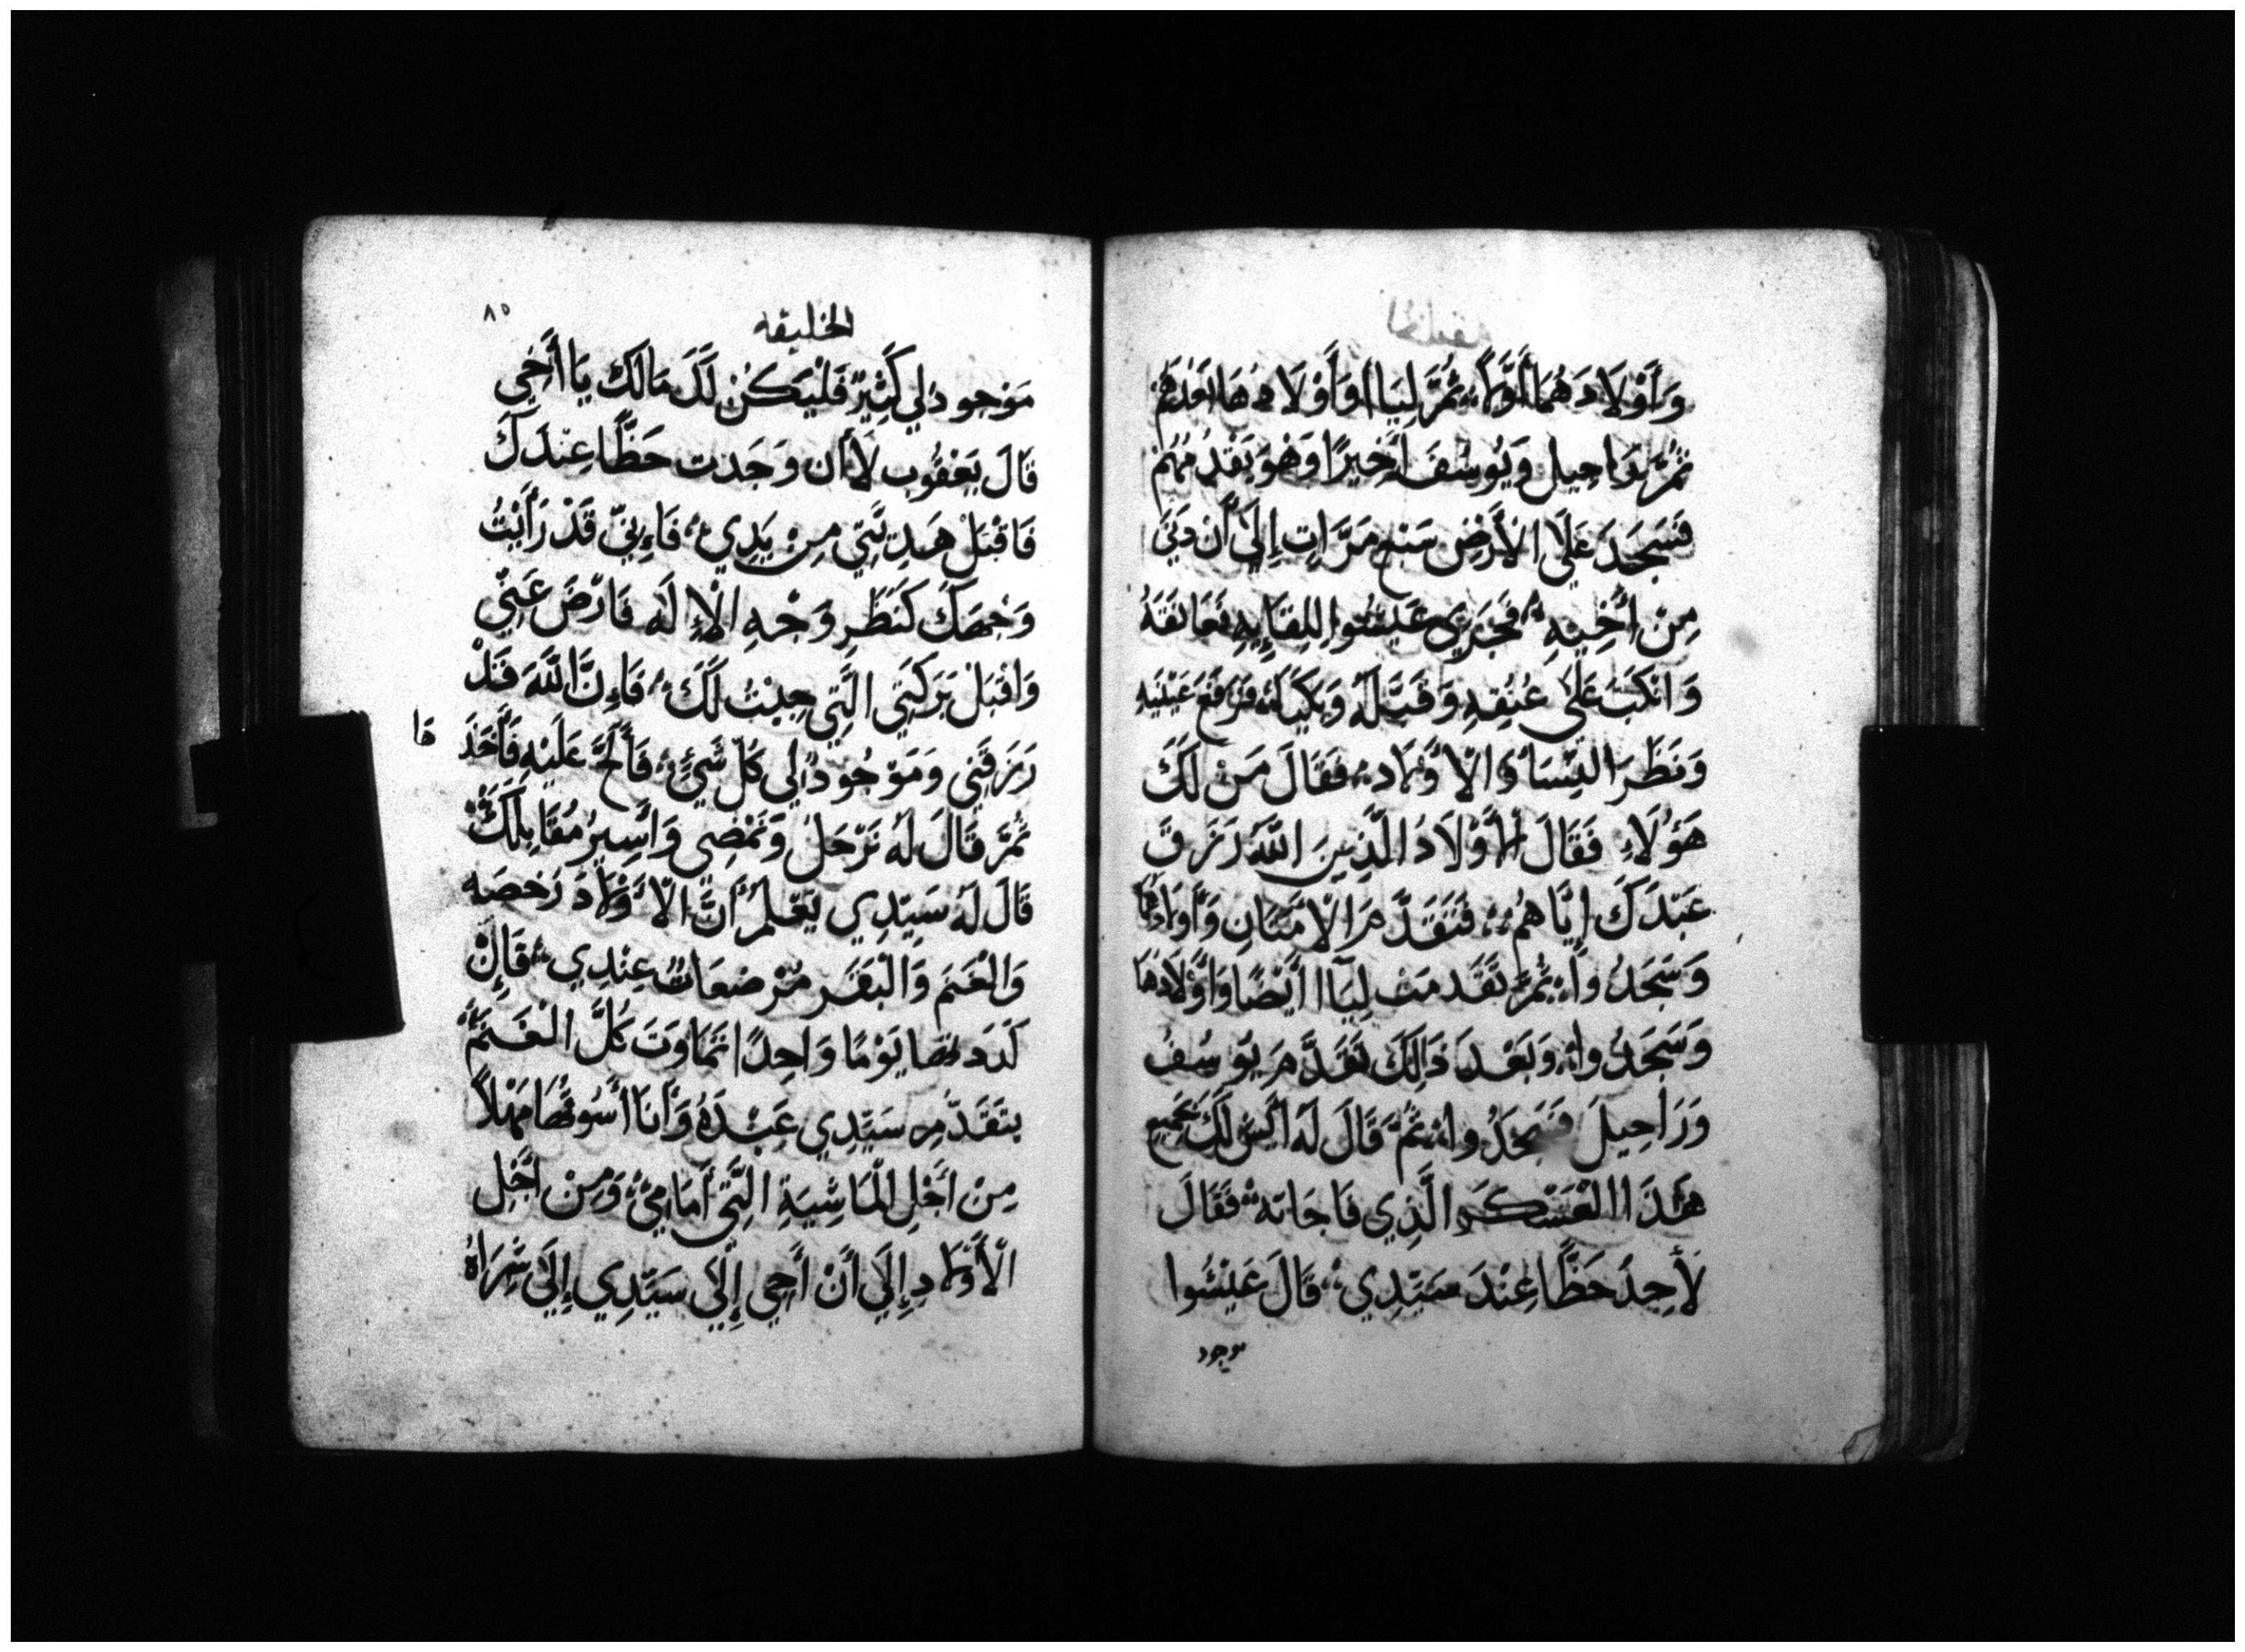 وَأَوْلَادَهُمَا أَوَّلًا، ثُمَّ لِيَاا وَأَوْلَادَهَا بَعْدَهُم
ثُمَّ رَاحِيل وَيُوسُفَ أَخِيرًا وَهْوَ تَقْدَمَهُمْ
فَسَجَدَ عَلَى الْأَرْضِ سَبْع مَرَّاتٍ إِلَى أَن دَنَى
مِنْ أَخِيهِ، فَجَرَى عَيْسُوا لِلِقَايِهِ فَعَانَقَهُ
وَانْكَبَّ عَلَى عُنُقِهِ وَقَبَّلَهُ وَبَكَيَا، فَرَفَعَ عَيْنَيْهِ
وَنَظَرَ النِّسَا وَالْأَوْلَاد، فَقَالَ مَنْ لَكَ
هَؤُلَاءِ فَقَالَ الْأَوْلَادَ الَّذِينَ اللَّهُ رَزَقَ
عَبْدَكَ إِيَّاهُم، فَتَقَدَّمَ الْأَمَتَانِ وَأَوْلَادُهُمَا
وَسَجَدُوا، ثُمَّ تَقَدمَتْ لِيَاا أَيْضًا وَأَوْلَادهَا
وَسَجَدُوا، وَبَعْدَ ذَالِكَ تَقَدَّمَ يُوسُفُ
وَرَاحِيلَ فَسَجَدُوا، ثُمَّ قَالَ لَهُ ايْش لَكَ جَمِيع
هَذَا الْعَسْكَر الَّذِي فَاجَانَه، فَقَالَ
لِأَجِدَ حَظًّا عِنْدَ سَيِّدِي، قَالَ عَيْسُوا
موجود
٨٥
الخليقه
مَوْجود لِي كَثِيرٌ فَلْيَكُنْ لَكَ مَالَكَ يَا أَخِي
قَالَ يَعْقُوب لَا أَن وَجَدت حَظًّا عِنْدَكَ
فَاقْبَلْ هَدِيَّتِي مِنْ يَدِي، فَاءِنِّي قَدْ رَأَيْتُ
وَجْهَكَ كَنَظَرِ وَجْهِ الْإِلَه فَارْضَ عَنِّي
وَاقْبَلْ بَرَكَتِي الَّتِي جِيْتُ لَكَ، فَاءِنَّ اللَّهَ قَدْ
رَزَقَنِي وَمَوْجُودٌ لِي كُلّ شَيْءٍ، فَأَلَحَّ عَلَيْهِ فَأَخَذَ
ها
ثُمَّ قَالَ لَهُ نَرْحَلُ وَنَمْضِي وَأَسِيرُ مُقَابِلَكَ
قَالَ لَهُ سَيِّدِي يَعْلَمُ أَنَّ الْأَوْلَادَ رَخصَه
وَالْغَنَم وَالْبَقَر مُرْضِعَات عِنْدِي، فَإِنْ
لَددتهَا يَوْمًا وَاحِدًا تَمَاوَتَ كُلّ الْغَنَمُ
يتَقَدَّم سَيِّدِي عَبْدَهُ وَأَنَا أَسُوقُهَا مَهْلًا
مِنْ أَجْلِ الْمَاشِيَةِ الَّتِي أَمَامِي، وَمِنْ أَجْلِ
الْأَوْلَادِ إِلَى أَنْ أَجِي إِلَى سَيِّدِي إِلَى شَرَاهْ